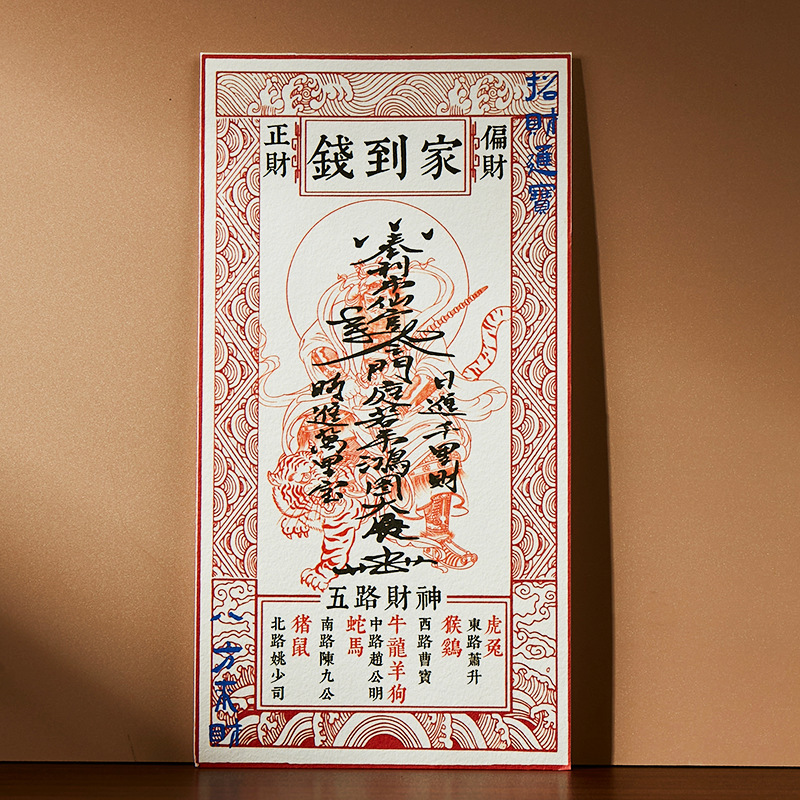 招財進寶
偏財
錢到家
正財
奉利市仙官
門庭若市鴻图大展
日進千里財
時進萬里宝
五路財神
虎兔
東路蕭升
猴鷄
西路曹寶
牛龍羊狗
中路趙公明
蛇馬
南路陳九公
猪鼠
北路姚少司
八方来財